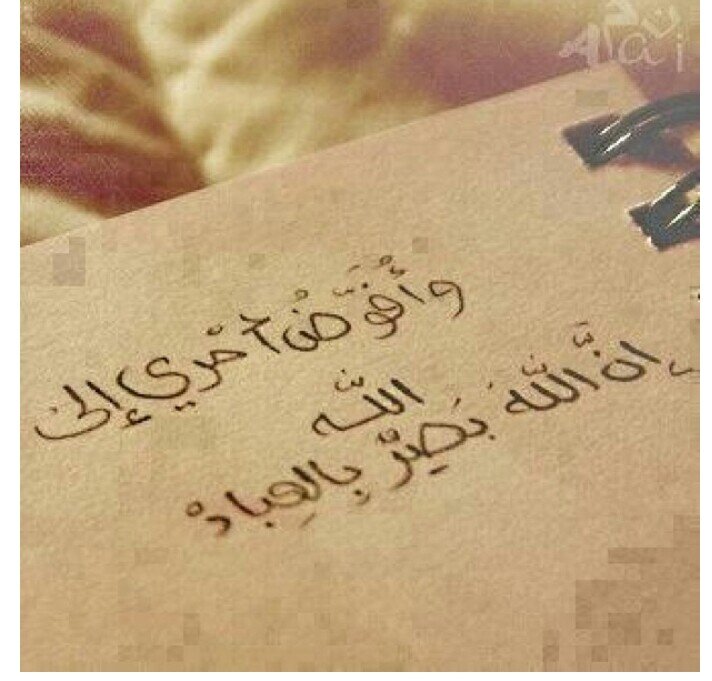 وأُفَوِّضُ أمْري إلى
اللّه
إنَّ اللّهَ بَصِيْرٌ بِالعِبادْ